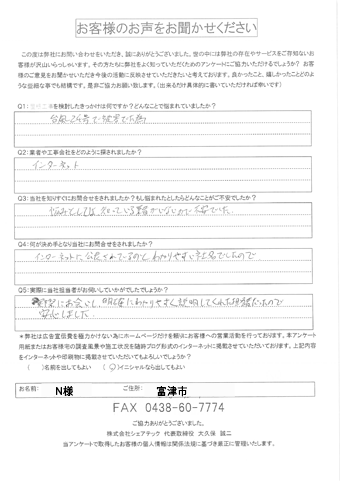 お客様のお声をお聞かせください
この度は弊社にお問い合わせをいただき、誠にありがとうございました。世の中には弊社の存在やサービスをご存知ないお
客様が沢山いらっしゃいます。その方たちに弊社をよく知っていただくためのアンケートにご協力いただけるでしょうか？お客
様のご意見をお聞かせいただき今後の活動に反映させていただきたいと考えております。良かったこと、嬉しかったことどのよ
うな些細な事でも結構です。是非ご協力お願い致します。（出来るだけ具体的に書いていただければ幸いです）
Q1：を検討したきっかけは何ですか？どんなことで悩まれていましたか？
台風24号で被害でた為
Q2：業者や工事会社をどのように探されましたか？
インターネット
Q3：当社を知りすぐにお問合せをされましたか？もし悩まれたとしたらどんなことがご不安でしたか？
悩みとしては、知っている業者がいないので不安でした。
Q4：何が決め手となり当社にお問合せをされましたか？
インターネットに公表されているのと、わかりやすい社名でしたので
Q5：実際に当社担当者がお伺いしていかがでしたでしょうか？
にお会いし、明確にわかりやすく説明してくれた
安心しました。
＊弊社は広告宣伝費を極力かけない為にホームページだけを頼りにお客様への営業活動を行っております。本アンケート
用紙またはお客様宅の調査風景や施工状況を随時ブログ形式のインターネットに掲載させていただいております。上記内容
をインターネットや印刷物に掲載させていただいてもよろしいでしょうか？
（　）名前を出してもよい　（○）イニシャルなら出してもよい
お名前：　N様　ご住所：　富津市
FAX 0438-60-7774
ご協力ありがとうございました。
株式会社シェアテック　代表取締役　大久保 誠二
当アンケートで取得したお客様の個人情報は関係法規に基づき厳正に管理いたします。